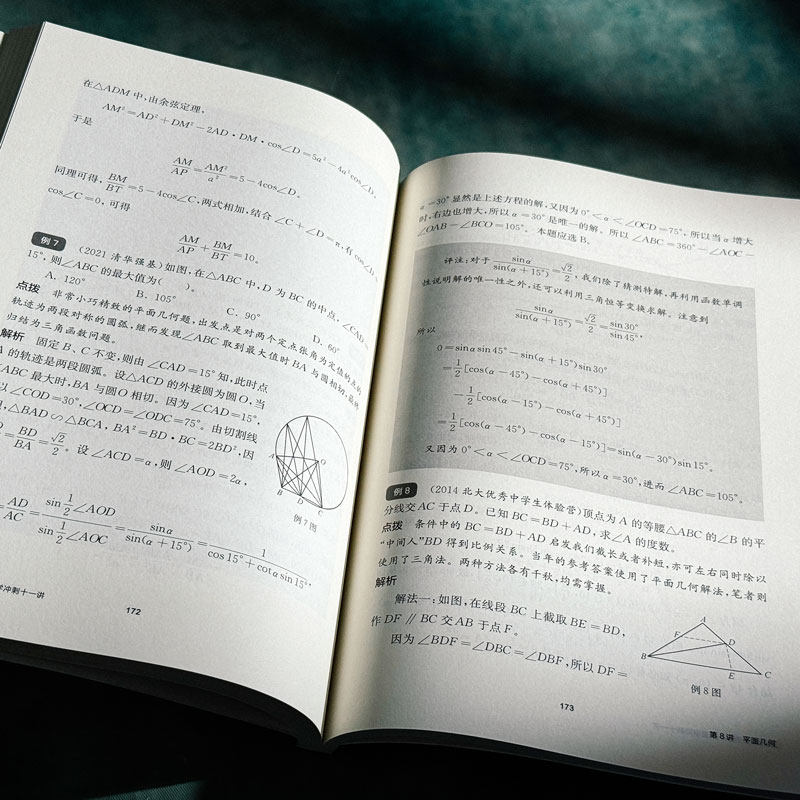 在△ADM 中,由余弦定理,
AM²=AD²+DM²-2AD·DM·cos∠D=5a²-4a²cos∠D,
于是
AM/AP=AM²/a²=5-4cos∠D.
同理可得,BM/BT=5-4cos∠C,两式相加,结合∠C+∠D=π,有 cos∠D+
cos∠C=0,可得
AM/AP+BM/BT=10。
例 7 (2021 清华强基)如图,在△ABC 中,D 为 BC 的中点,∠CAD=
15°,则∠ABC 的最大值为( )。
A. 120° B. 105° C. 90° D. 60°
点拨 非常小巧精致的平面几何题,出发点是对两个定点张角为定值的点的
轨迹为两段对称的圆弧,继而发现∠ABC 取到最大值时 BA 与圆相切,最终
归结为三角函数问题。
解析 固定 B、C 不变,则由∠CAD=15°知,此时点
A 的轨迹是两段圆弧。设△ACD 的外接圆为圆 O,当
∠ABC 最大时,BA 与圆 O 相切。因为∠CAD=15°,
以∠COD=30°,∠OCD=∠ODC=75°。由切割线
,△BAD∽△BCA,BA²=BD·BC=2BD²,因
BD/BA=√2/2。设∠ACD=α,则∠AOD=2α,
A
O
B
D
C
例 7 图
AD/AC=sin½∠AOD/sin½∠AOC=sinα/sin(α+15°)=1/cos15°+cotα sin15°,
冲刺十一讲
172
α=30°显然是上述方程的解,又因为 0°<α<∠OCD=75°,所以当 α 增大
时,右边也增大,所以 α=30°是唯一的解。所以∠ABC=360°-∠AOC-
∠OAB-∠BCO=105°。本题应选 B。
评注:对于 sinα/sin(α+15°)=√2/2,我们除了猜测特解,再利用函数单调
性说明解的唯一性之外,还可以利用三角恒等变换求解。注意到
sinα/sin(α+15°)=√2/2=sin30°/sin45°,
所以
0=sinαsin45°-sin(α+15°)sin30°
=½[cos(α-45°)-cos(α+45°)]
-½[cos(α-15°)-cos(α+45°)]
=½[cos(α-45°)-cos(α-15°)]=sin(α-30°)sin15°。
又因为 0°<α<∠OCD=75°,所以 α=30°,进而∠ABC=105°。
例 8 (2014 北大优秀中学生体验营)顶点为 A 的等腰△ABC 的∠B 的平
分线交 AC 于点 D。已知 BC=BD+AD,求∠A 的度数。
点拨 条件中的 BC=BD+AD 启发我们截长或者补短,亦可左右同时除以
“中间人”BD 得到比例关系。当年的参考答案使用了平面几何解法,笔者则
使用了三角法。两种方法各有千秋,均需掌握。
解析
解法一:如图,在线段 BC 上截取 BE=BD,
作 DF∥BC 交 AB 于点 F。
因为∠BDF=∠DBC=∠DBF,所以 DF=
A
F
D
B
E
C
例 8 图
173
第 8 讲 平面几何